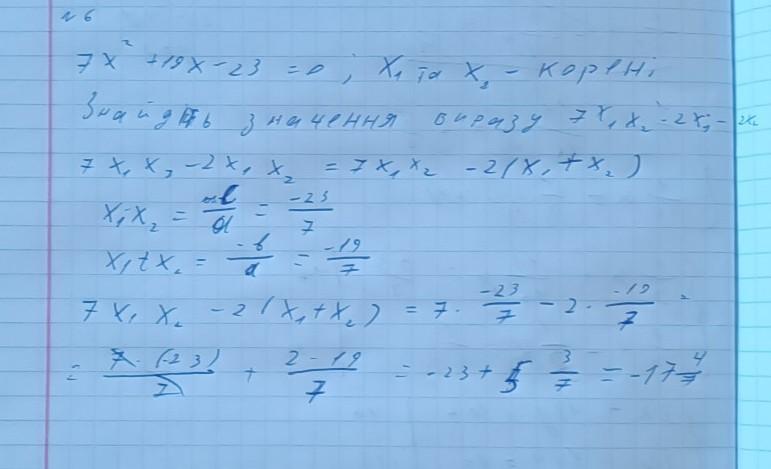 № 6
7x² + 19x - 23 = 0 ; x₁ та x₂ - корені
Знайдіть значення виразу 7x₁x₂ - 2x₁ - 2x₂
7x₁x₂ - 2x₁ x₂ = 7x₁x₂ - 2(x₁ + x₂)
x₁·x₂ = c/a = -23/7
x₁ + x₂ = -b/a = -19/7
7x₁ x₂ - 2(x₁ + x₂) = 7 · -23/7 - 2 · -19/7 =
= 7·(-23)/7 + 2-19/7 = -23 + 5 3/7 = -17 4/7